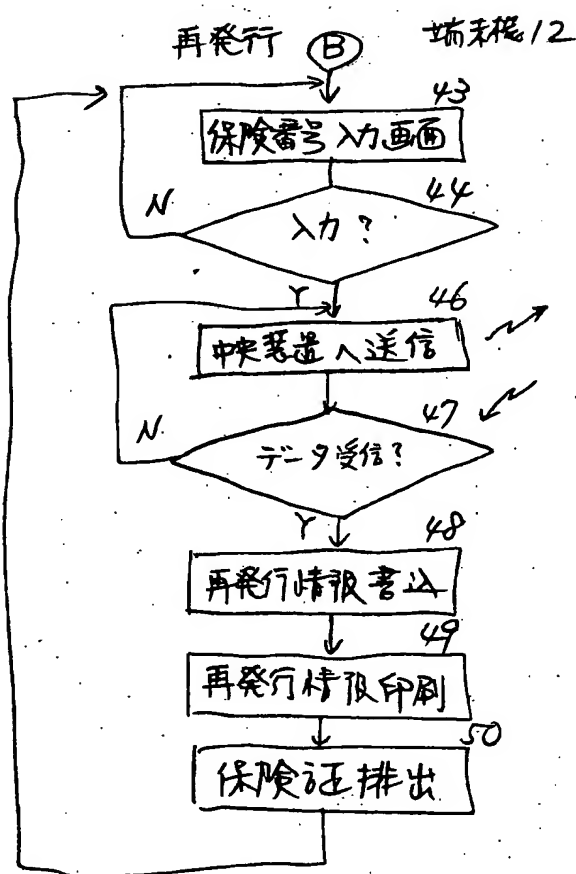 再発行 B 端末機12
43
保険番号入力画面
44
N
入力?
Y
46
中央装置へ送信
47
N
データ受信?
Y
48
再発行情報書込
49
再発行情報印刷
50
保険証排出